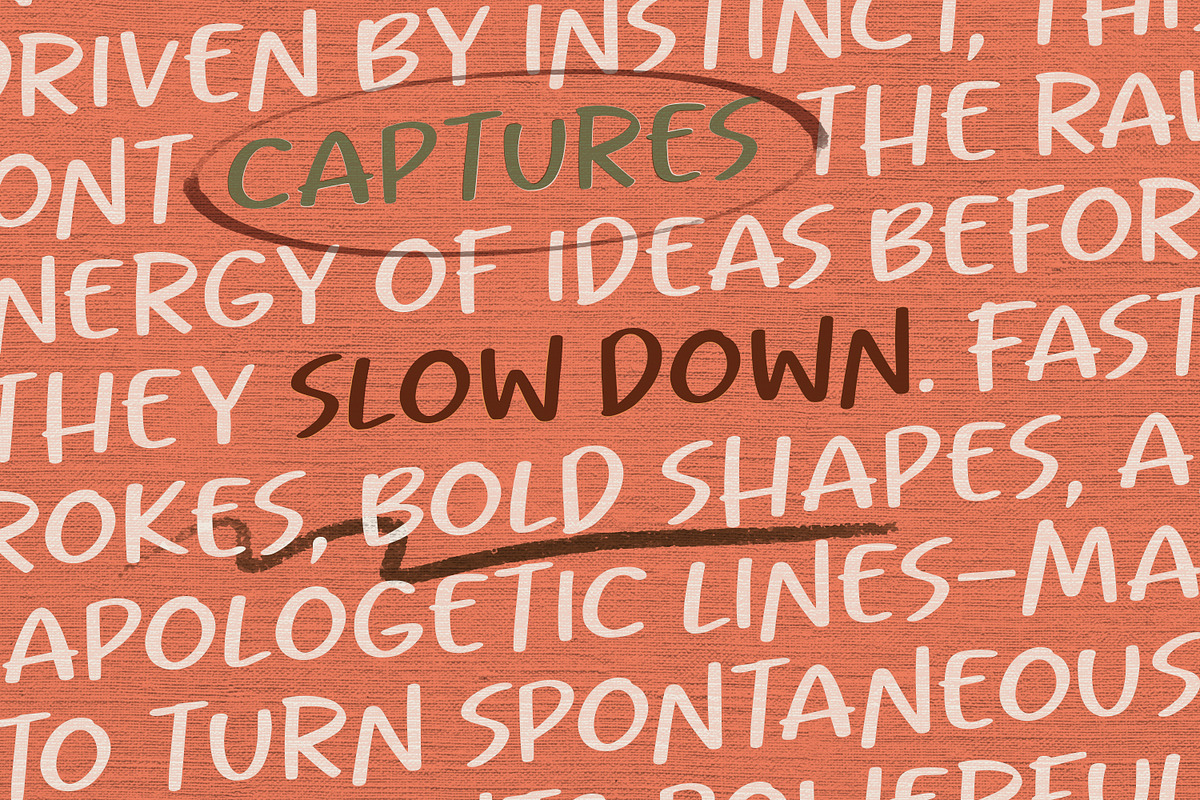 DRIVEN BY INSTINCT,
ONT CAPTURES THE RAW
NERGY OF IDEAS BEFOR
THEY SLOW DOWN. FAST
ROKES, BOLD SHAPES, A
APOLOGETIC LINES—MA
TO TURN SPONTANEOUS